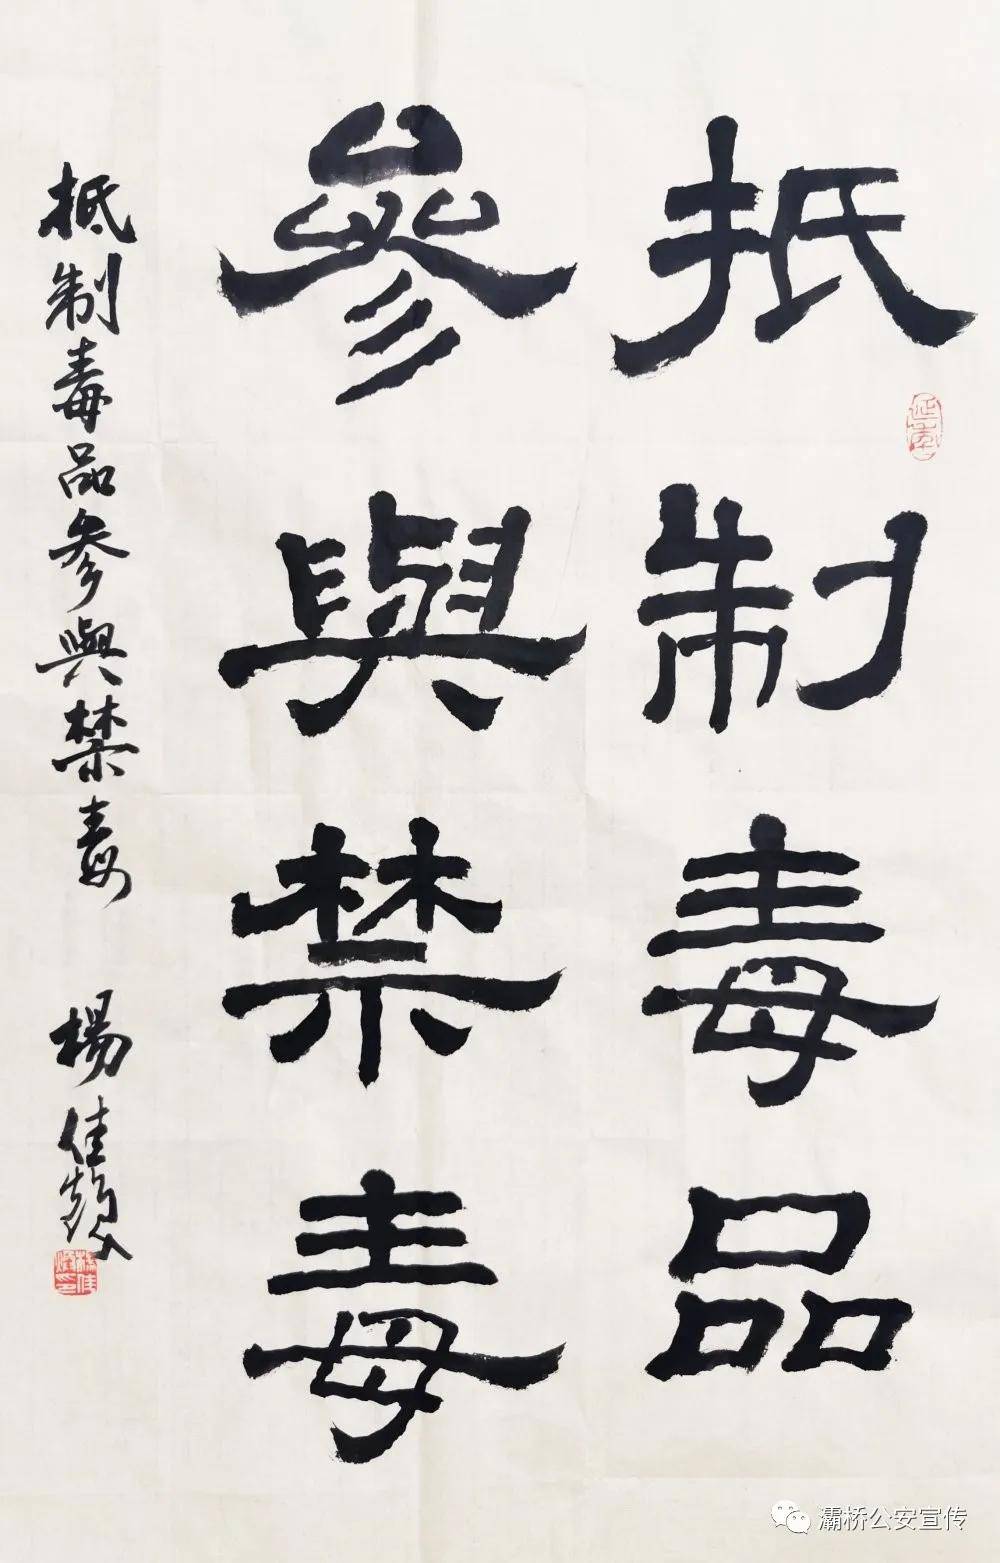 抵制毒品
參與禁毒
抵制毒品参與禁毒 楊佳
延年
灞桥公安宣传